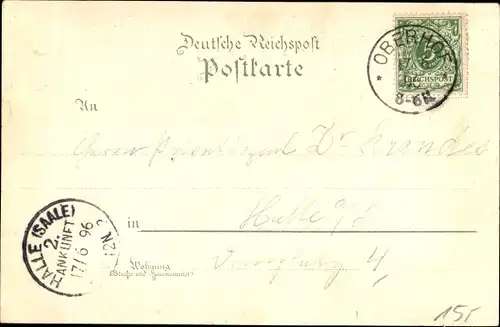 Deutsche Reichspost
Postkarte
* OBERHOF
5
REICHSPOST
8-6N
An
Herrn Dr Brandes
in Halle a/S
HALLE (SAALE)
2.
ANKUNFT
17/6 96
Wohnung
(Straße und Hausnummer)
4
15,-